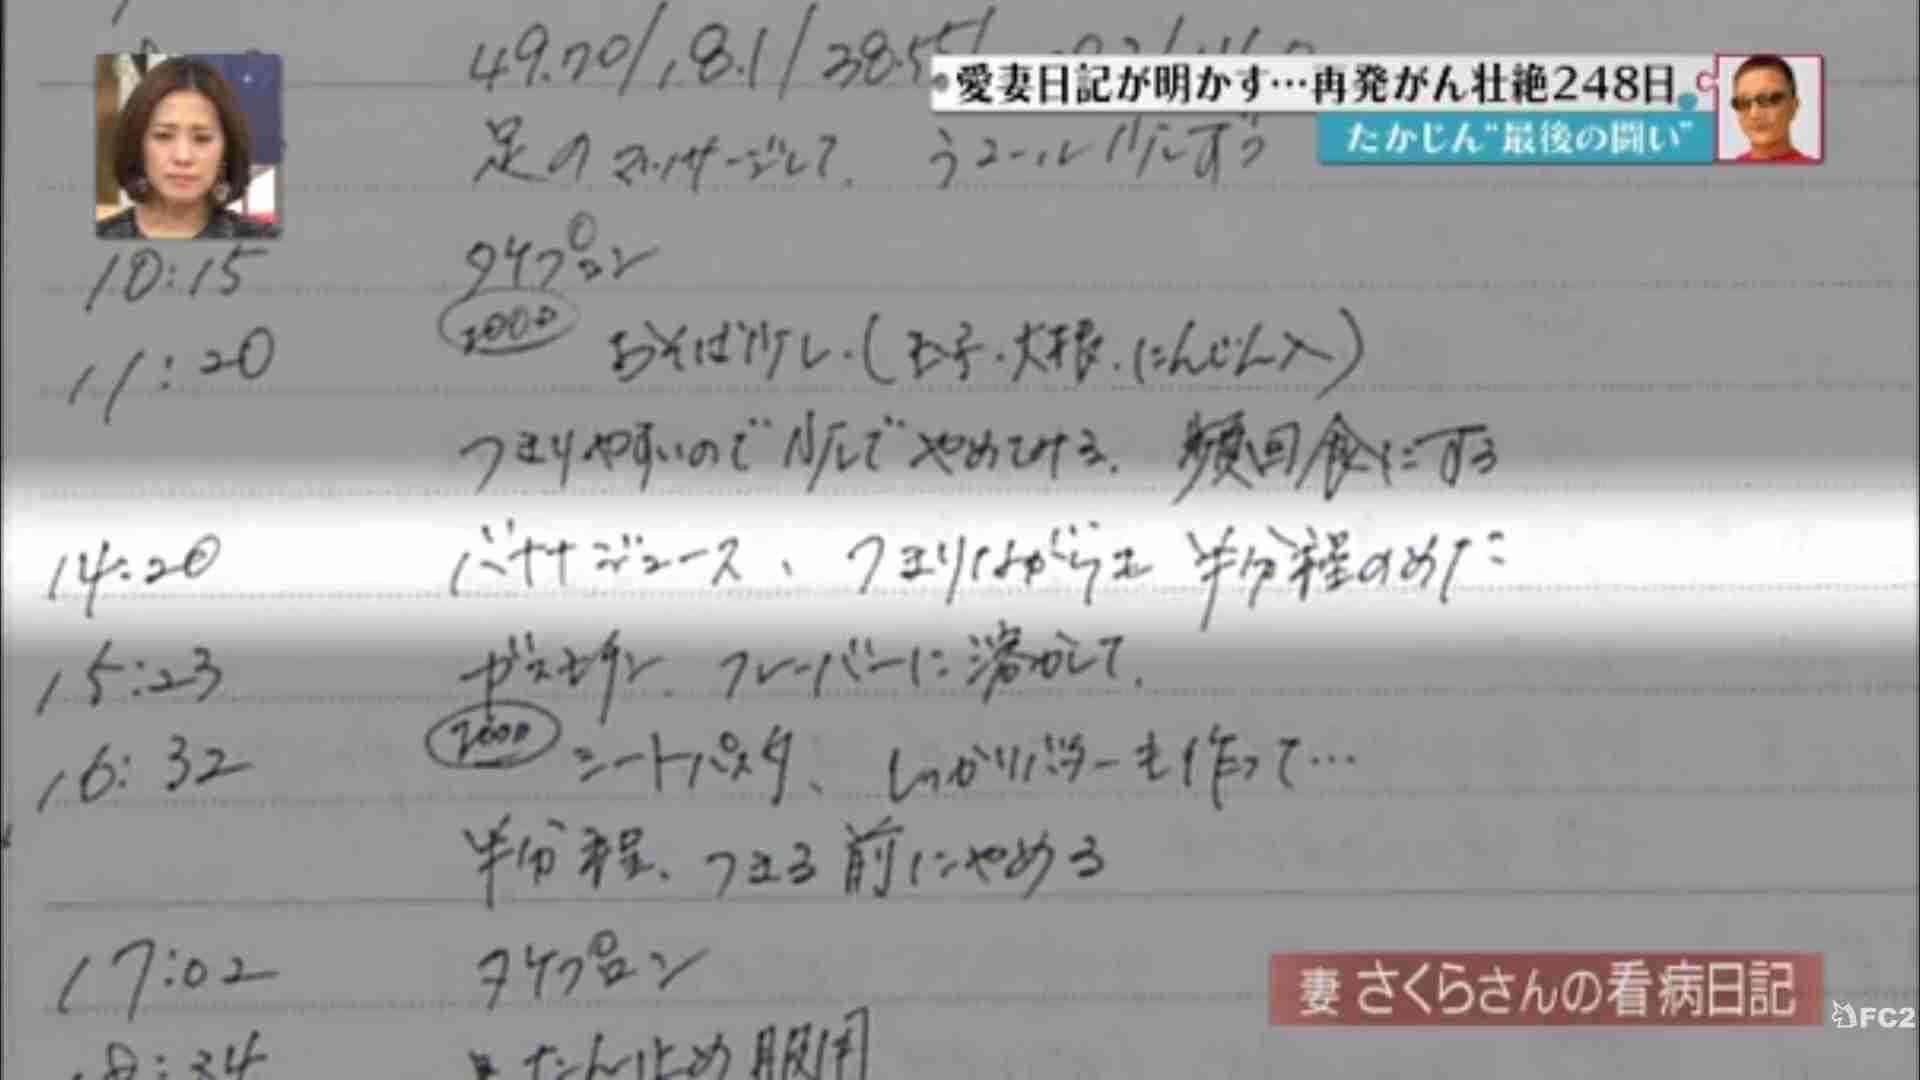 49.70/, 8.1/38.5
愛妻日記が明かす…再発がん壮絶248日
たかじん“最後の闘い”
足のマッサージして、
10:15 タケプロン
11:20 2000 おそば少し・(玉子・大根・にんじん入)
つまりやすいので少しでやめてみる. 頻回食にする
14:20 バナナジュース、つまりながらも半分程のめた
15:23 フレーバーに溶かして.
16:32 2000 シートパスタ、しっかりバターも作って…
半分程、つまる前にやめる
17:02 タケプロン
妻 さくらさんの看病日記
FC2
18:34 たん止め服用